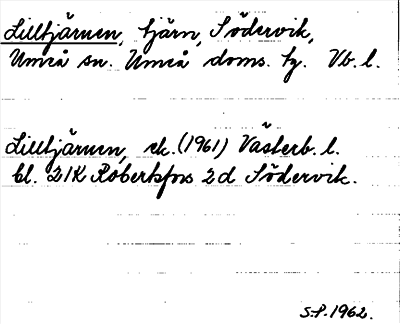 Lilltjärnen, tjärn, Södervik,
Umeå sn. Umeå doms. tg. Vb. l.
Lilltjärnen, ek. (1961) Västerb. l.
bl. 21K Robertsfors 2d Södervik.
S.P. 1962.